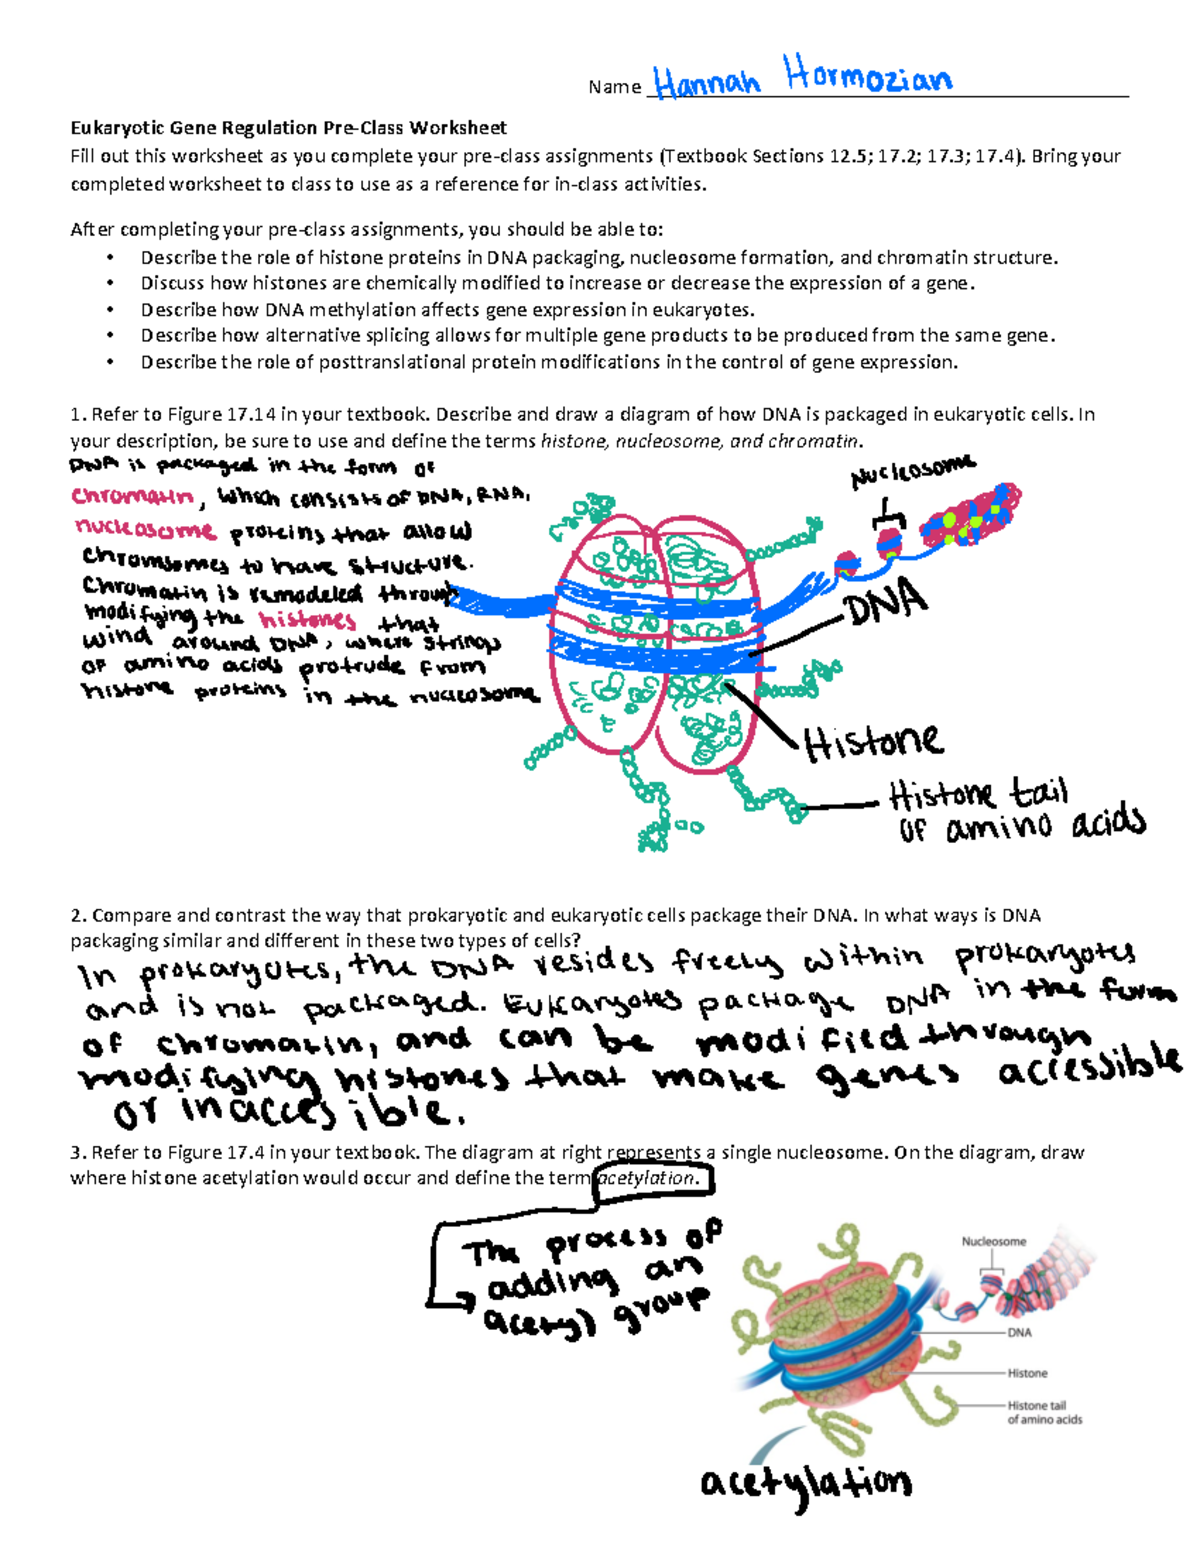 Name Hannah Hormozian
Eukaryotic Gene Regulation Pre-Class Worksheet
Fill out this worksheet as you complete your pre-class assignments (Textbook Sections 12.5; 17.2; 17.3; 17.4). Bring your
completed worksheet to class to use as a reference for in-class activities.
After completing your pre-class assignments, you should be able to:
• Describe the role of histone proteins in DNA packaging, nucleosome formation, and chromatin structure.
• Discuss how histones are chemically modified to increase or decrease the expression of a gene.
• Describe how DNA methylation affects gene expression in eukaryotes.
• Describe how alternative splicing allows for multiple gene products to be produced from the same gene.
• Describe the role of posttranslational protein modifications in the control of gene expression.
1. Refer to Figure 17.14 in your textbook. Describe and draw a diagram of how DNA is packaged in eukaryotic cells. In
your description, be sure to use and define the terms histone, nucleosome, and chromatin.
DNA is packaged in the form of
chromatin, which consists of DNA, RNA,
nucleosome proteins that allow
chromsomes to have structure.
Chromatin is remodeled through
modifying the histones that
wind around DNA, where strings
of amino acids protrude from
histone proteins in the nucleosome
Nucleosome
DNA
Histone
Histone tail
of amino acids
2. Compare and contrast the way that prokaryotic and eukaryotic cells package their DNA. In what ways is DNA
packaging similar and different in these two types of cells?
In prokaryotes, the DNA resides freely within prokaryotes
and is not packaged. Eukaryotes package DNA in the form
of chromatin, and can be modified through
modifying histones that make genes accessible
or inaccesible.
3. Refer to Figure 17.4 in your textbook. The diagram at right represents a single nucleosome. On the diagram, draw
where histone acetylation would occur and define the term acetylation.
The process of
adding an
acetyl group
Nucleosome
DNA
Histone
Histone tail
of amino acids
acetylation